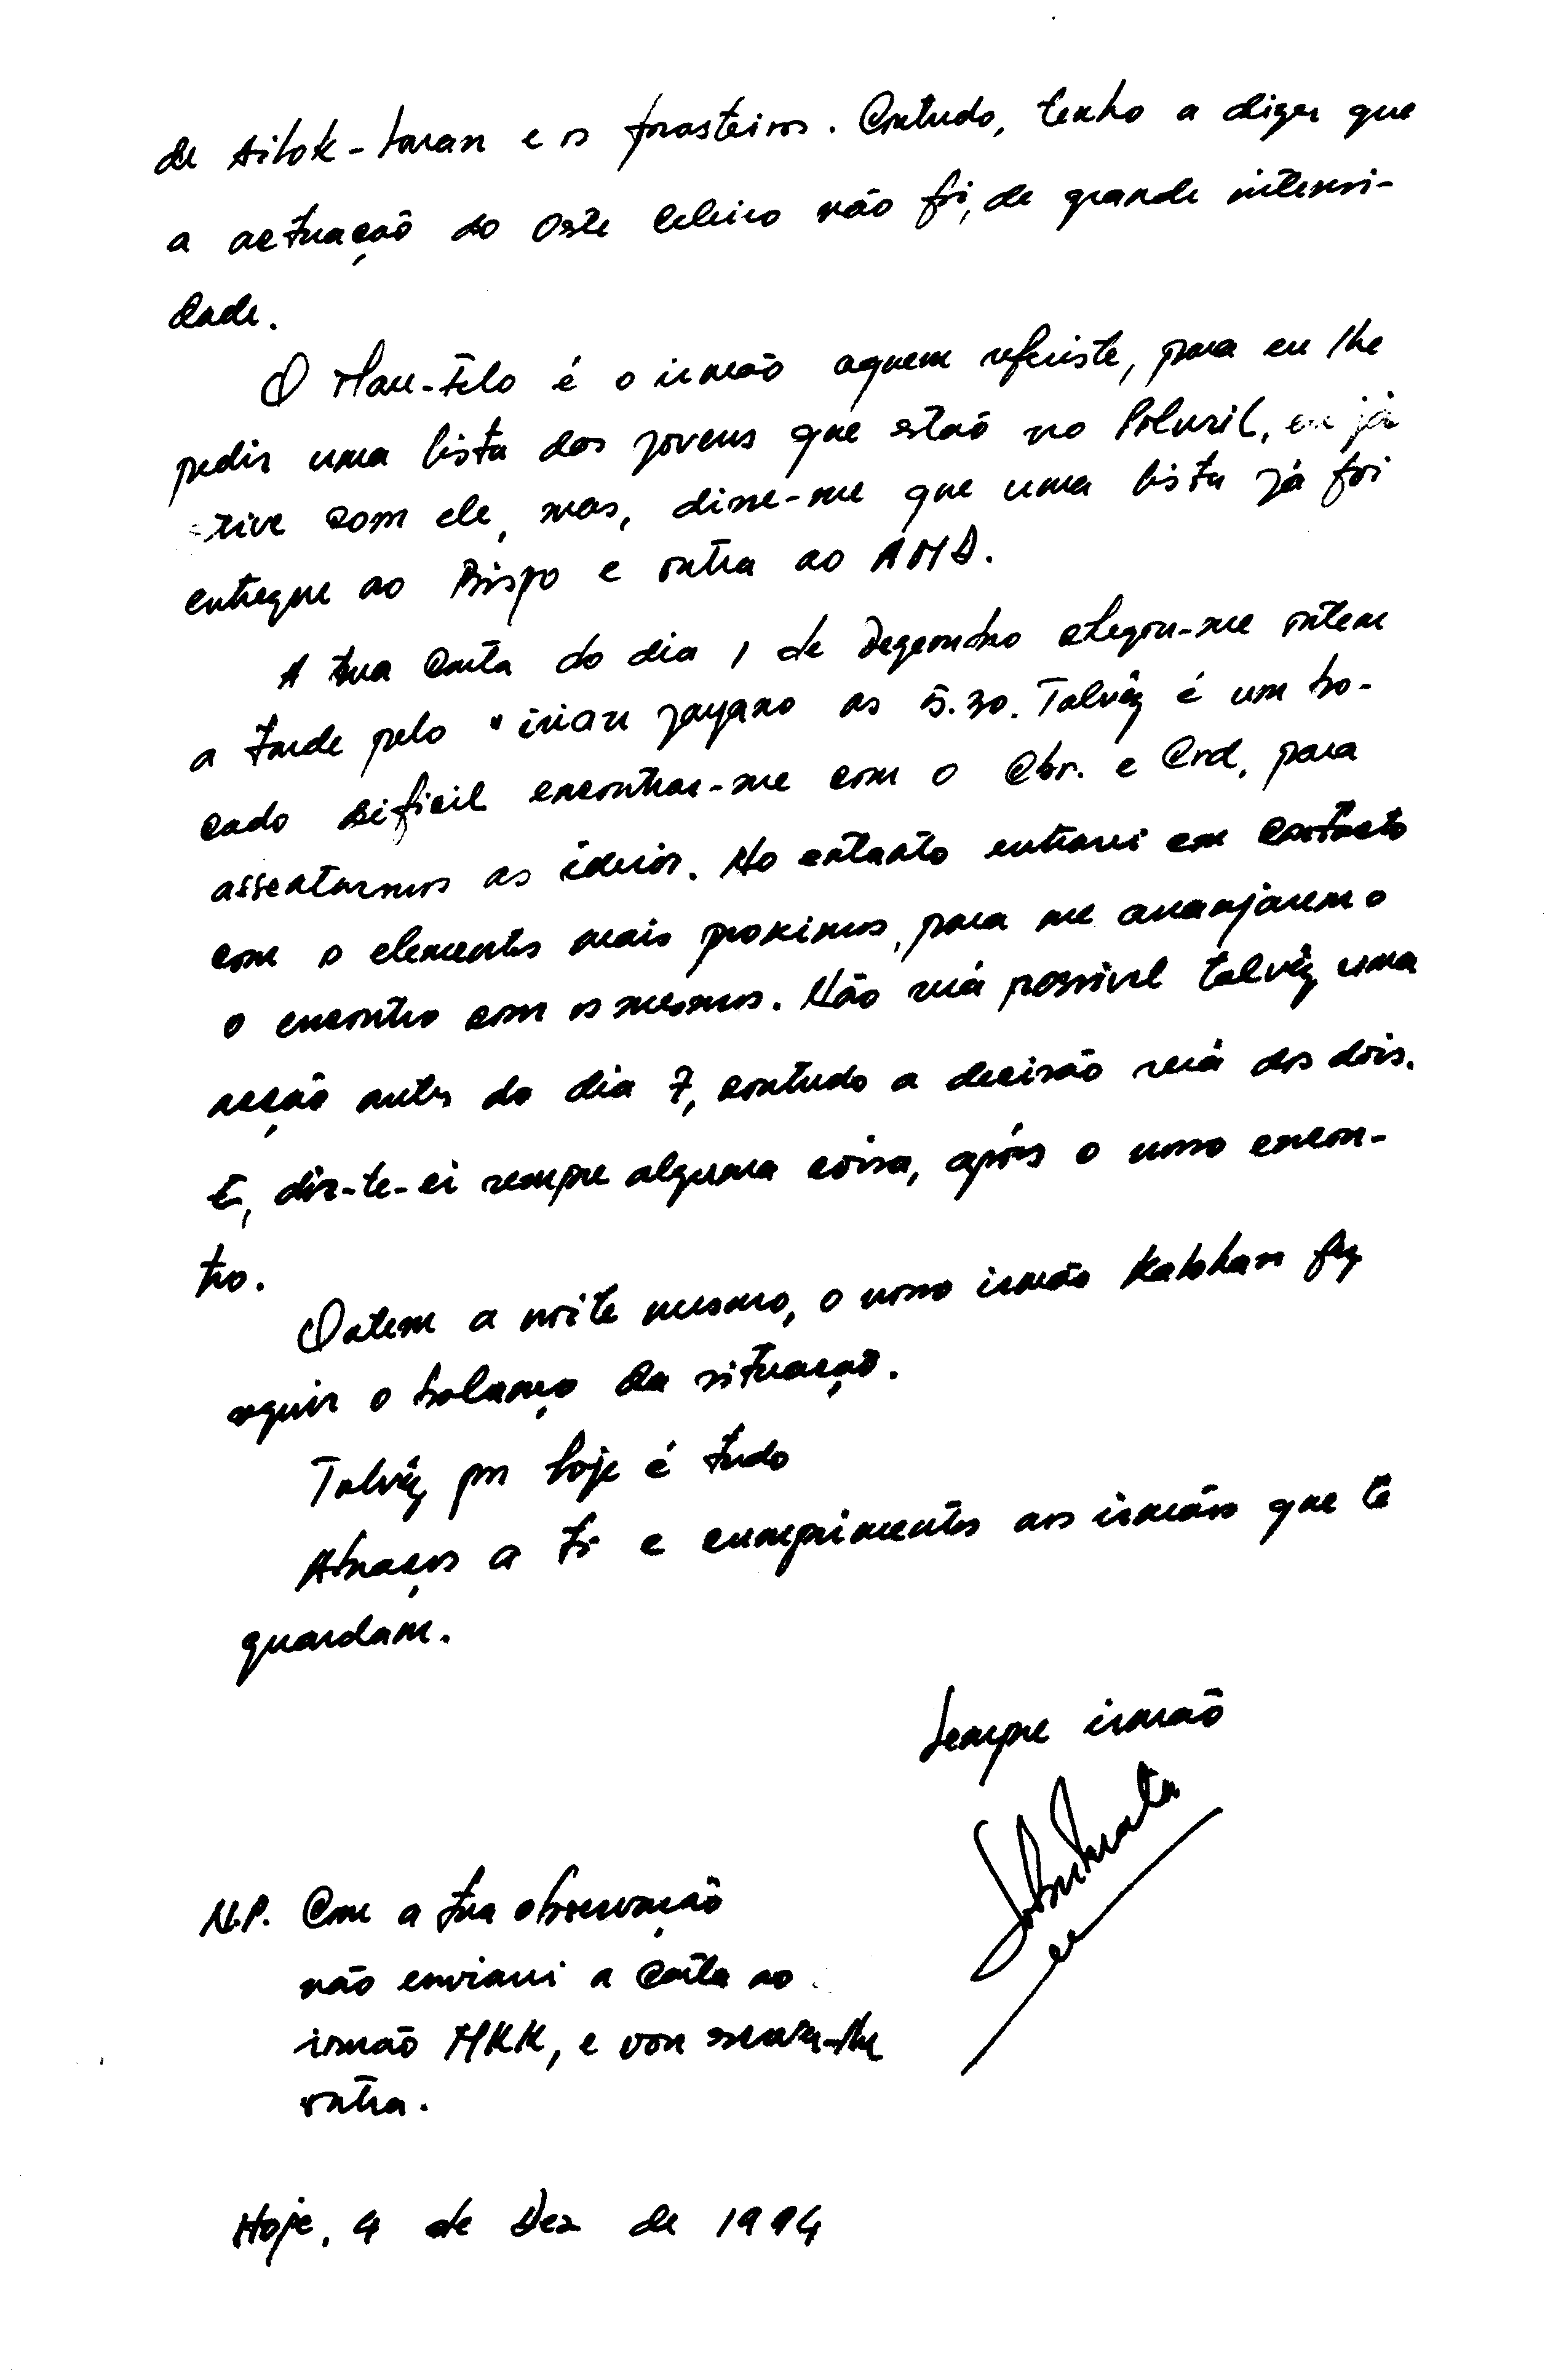 de Aitok-laran e os forasteiros. Contudo, tenho a dizer que
a actuação do Oste Celeiro não foi, de grande intensi-
dade.
O Mau-Felo é o irmão aquem referiste, para eu lhe
pedir uma lista dos jovens que estão no Polwil, eu já
tive com ele, mas, disse-me que uma lista já foi
entregue ao Bispo e outra ao AMD.
A tua carta do dia 1 de Dezembro chegou-me ontem
a tarde pelo " irian jayano as 5.30. Talvêz é um bo-
cado dificil encontrar-me com o Cbr. e Crd, para
assentarmos as ideias. No entanto entrarei em contacto
com o elementos mais proximos, para me arranjarem o
o encontro com os mesmos. Não será possivel talvêz uma
acção antes do dia 7, contudo a decisão será dos dois.
E, dir-te-ei sempre alguma coisa, após o nosso encon-
tro.
Ontem a noite mesmo, o nosso irmão Kalohan fez
seguir o balanço da situação.
Talvêz por hoje é tudo
Abraços a ti e cumprimentos aos irmãos que te
guardam.
Sempre irmão
N.P. Com a tua observação
não enviarei a carta ao
irmão MKK, e vou escrever-lhe
outra.
Hoje, 4 de Dez de 1994